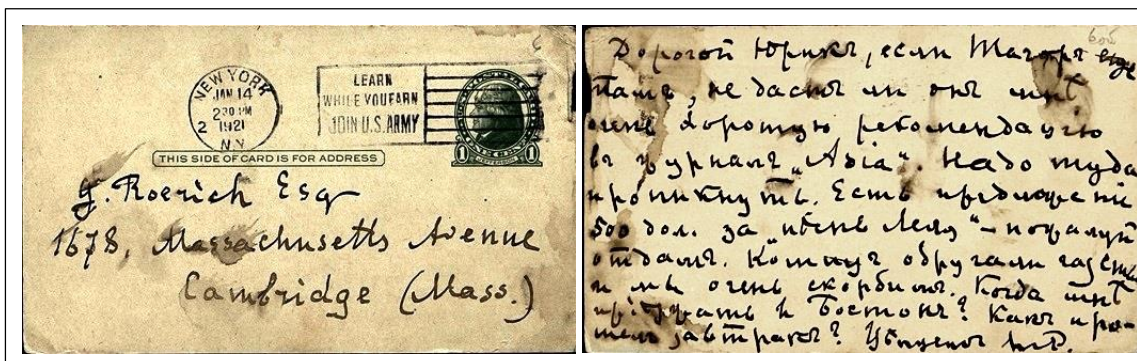 NEW YORK
JAN 14
2 30 PM
1921
2
N.Y.
LEARN
WHILE YOU EARN
JOIN U.S. ARMY
THIS SIDE OF CARD IS FOR ADDRESS
1 JEFFERSON 1
G. Roerich Esq
1678, Massachusetts Avenue
Cambridge (Mass.)
Дорогой Юрикъ, если Тагоръ еще
тамъ, не дастъ ли онъ мнѣ
очень хорошую рекомендацію
въ журналъ „Asia“. Надо туда
проникнуть. Есть предложеніе
500 дол. за „пѣснь Леля“ – пожалуй
отдамъ. Кошицъ обругали газеты
и мы очень скорбимъ. Когда мнѣ
пріѣхать в Бостонъ? Какъ про-
шелъ завтракъ?